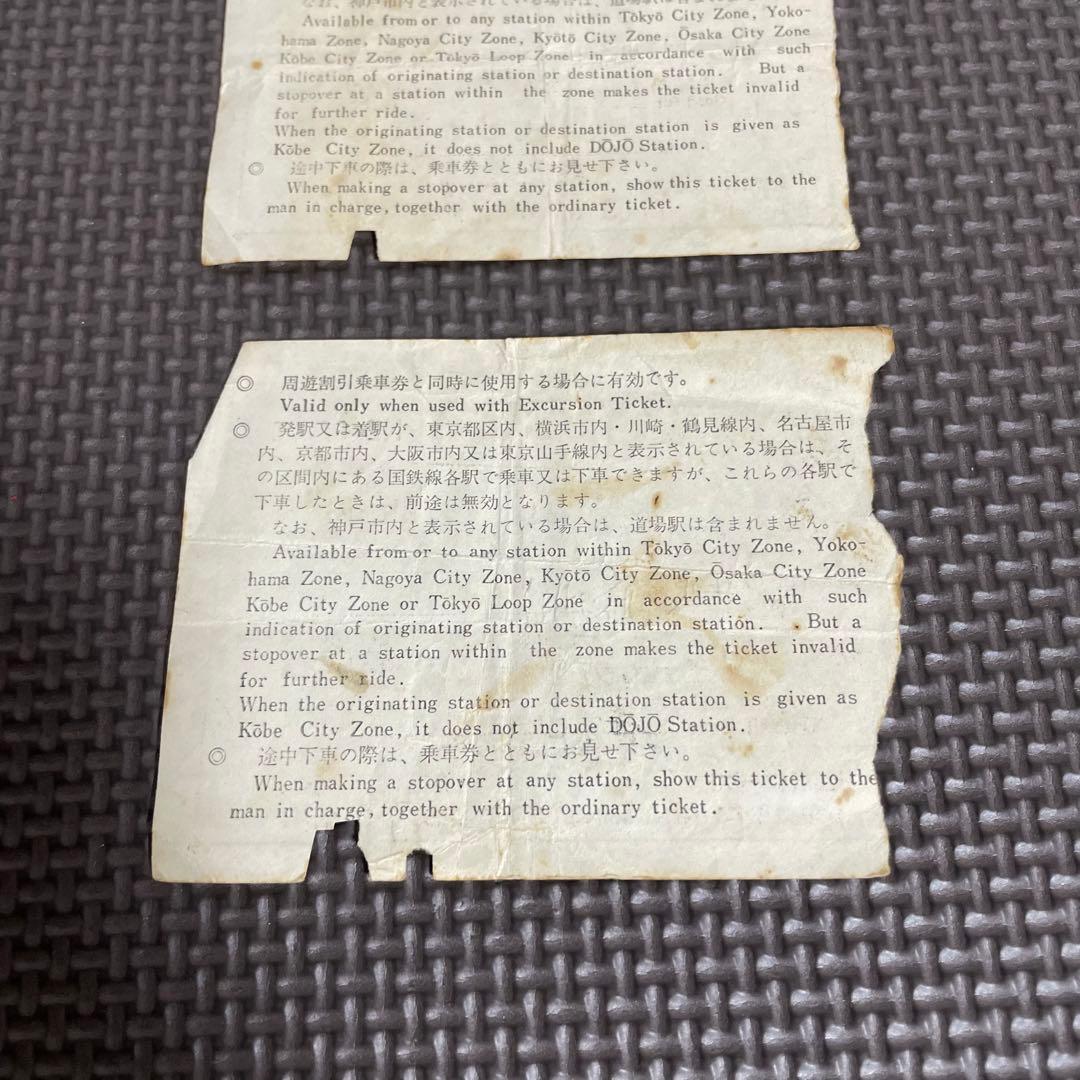 なお、神戸市内と表示されている場合は、道場駅は含まれません
Available from or to any station within Tōkyō City Zone, Yoko-
hama Zone, Nagoya City Zone, Kyōtō City Zone, Ōsaka City Zone
Kōbe City Zone or Tōkyō Loop Zone in accordance with such
indication of originating station or destination station. But a
stopover at a station within the zone makes the ticket invalid
for further ride.
When the originating station or destination station is given as
Kōbe City Zone, it does not include DŌJŌ Station.
◎ 途中下車の際は、乗車券とともにお見せ下さい。
When making a stopover at any station, show this ticket to the
man in charge, together with the ordinary ticket.
◎ 周遊割引乗車券と同時に使用する場合に有効です。
Valid only when used with Excursion Ticket.
◎ 発駅又は着駅が、東京都区内、横浜市内・川崎・鶴見線内、名古屋市
内、京都市内、大阪市内又は東京山手線内と表示されている場合は、そ
の区間内にある国鉄線各駅で乗車又は下車できますが、これらの各駅で
下車したときは、前途は無効となります。
なお、神戸市内と表示されている場合は、道場駅は含まれません。
Available from or to any station within Tōkyō City Zone, Yoko-
hama Zone, Nagoya City Zone, Kyōtō City Zone, Ōsaka City Zone
Kōbe City Zone or Tōkyō Loop Zone in accordance with such
indication of originating station or destination station. But a
stopover at a station within the zone makes the ticket invalid
for further ride.
When the originating station or destination station is given as
Kōbe City Zone, it does not include DŌJŌ Station.
◎ 途中下車の際は、乗車券とともにお見せ下さい。
When making a stopover at any station, show this ticket to the
man in charge, together with the ordinary ticket.